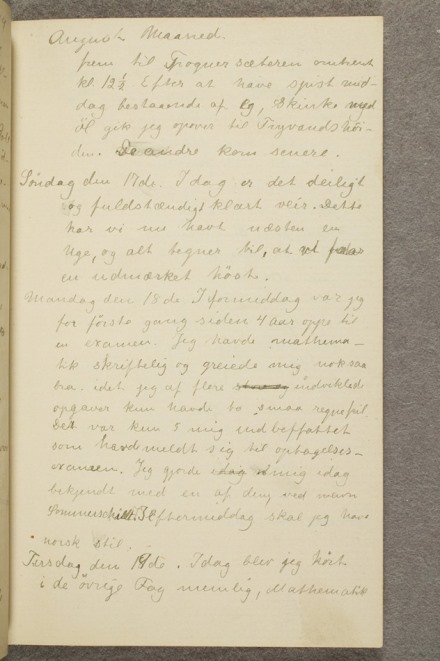 August Maaned.
frem til Frognersæteren omtrent
kl. 12½ Efter at have spist mid-
dag bestaaende af Eg, Skinke med
öl gik jeg opover til Tryvandshöi-
den. De andre kom senere.
Söndag den 17de. Idag er det deiligt
og fuldstændigt klart veir. Dette
har vi nu havt næsten en
Uge, og alt tegner til, at vi faar
en udmærket höst.
Mandag den 18de I formiddag var jeg
for förste gang siden 4 aar oppe til
en examen. Jeg havde mathema-
tik skriftelig og greiede mig noksaa
bra. idet jeg af flere udviklede
opgaver kun havde to smaa regnefeil.
Det var kun 5 mig indbefattet
som havde meldt sig til optagelses-
examen. Jeg gjorde mig idag
bekjendt med en af dem ved navn
Sommerschild. I Eftermiddag skal jeg have
norsk stil.
Tirsdag den 19de. Idag blev jeg hört
i de övrige Fag nemlig, Mathematik